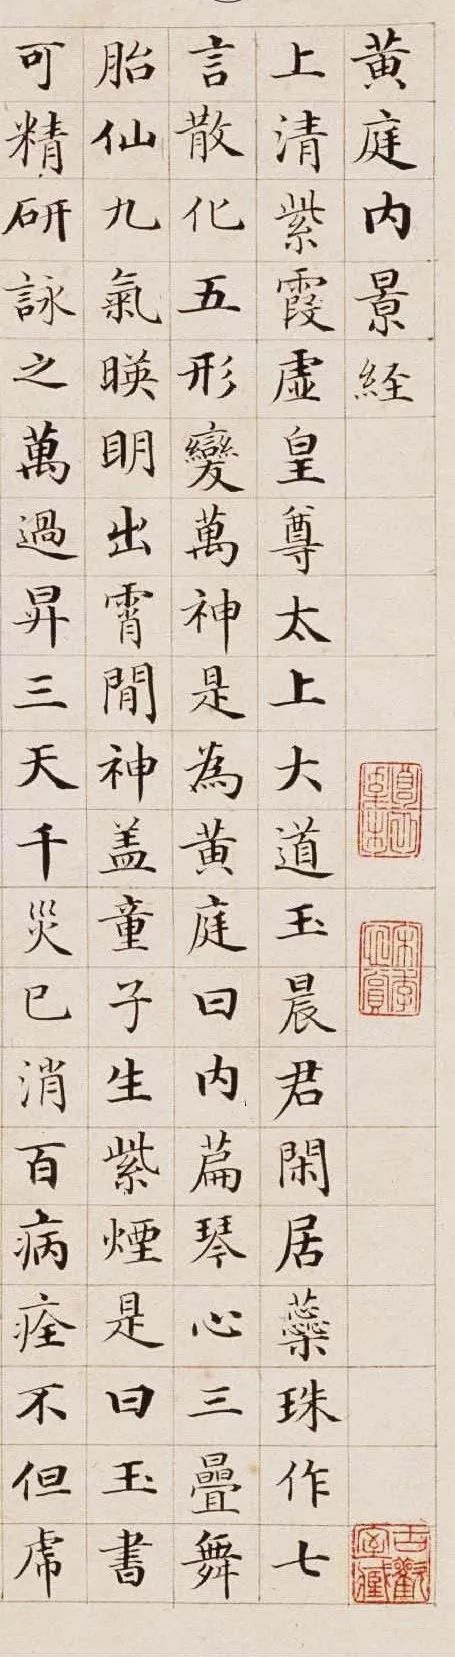 黄庭内景経
上清紫霞虚皇尊太上大道玉晨君閑居蘂珠作七
言散化五形變萬神是為黄庭曰内篇琴心三疊舞
胎仙九氣暎明出霄間神盖童子生紫煙是曰玉書
可精研詠之萬過昇三天千災已消百病痊不但虎